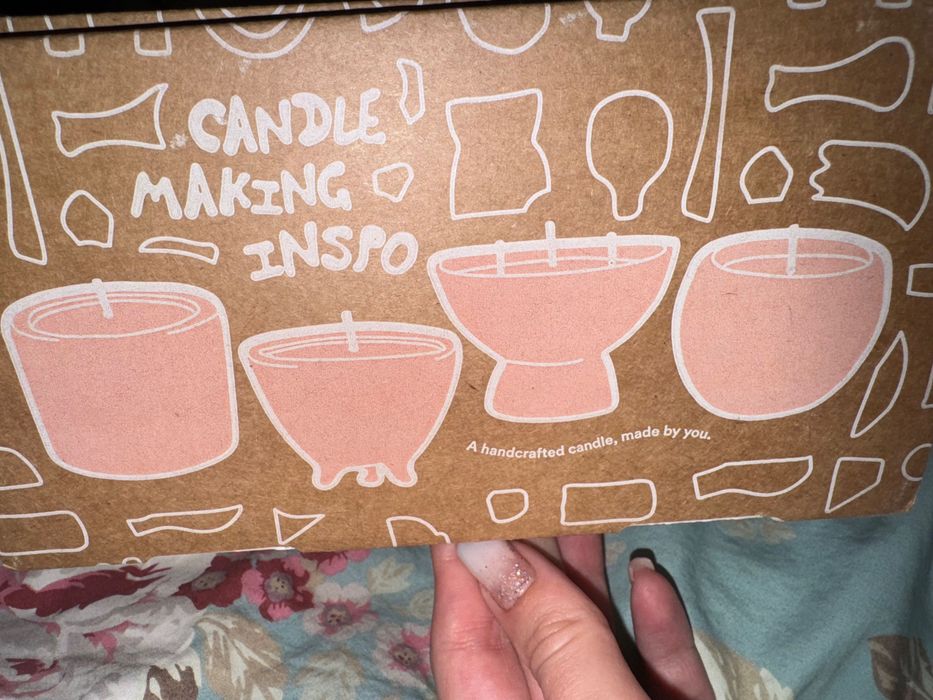 CANDLE
MAKING
INSPO
A handcrafted candle, made by you.